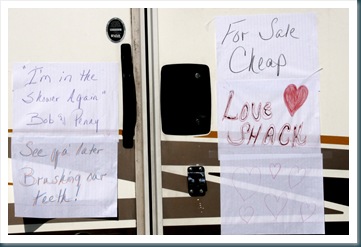 "I'm in the
Shower Again"
Bob & Penny
See ya' later
Brushing our
teeth!
For Sale
Cheap
LOVE
SHACK